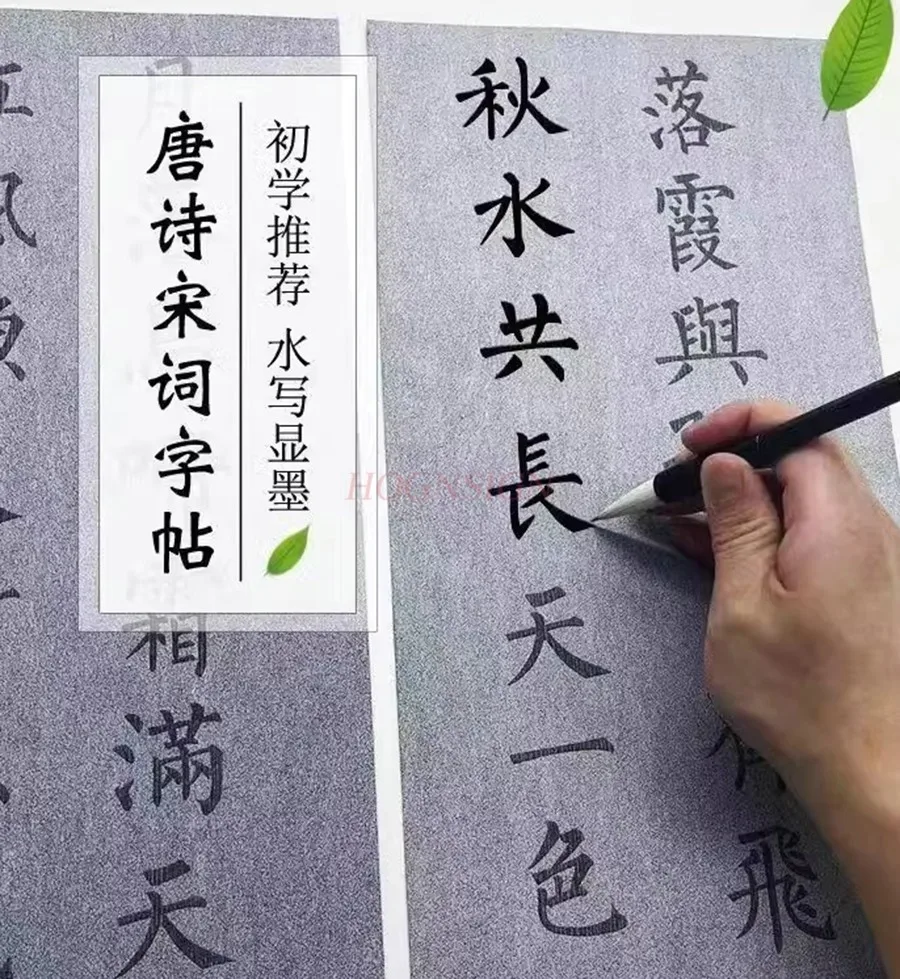 唐诗宋词字帖
初学推荐 水写显墨
落霞與飛
秋水共長天一色
月霜滿天